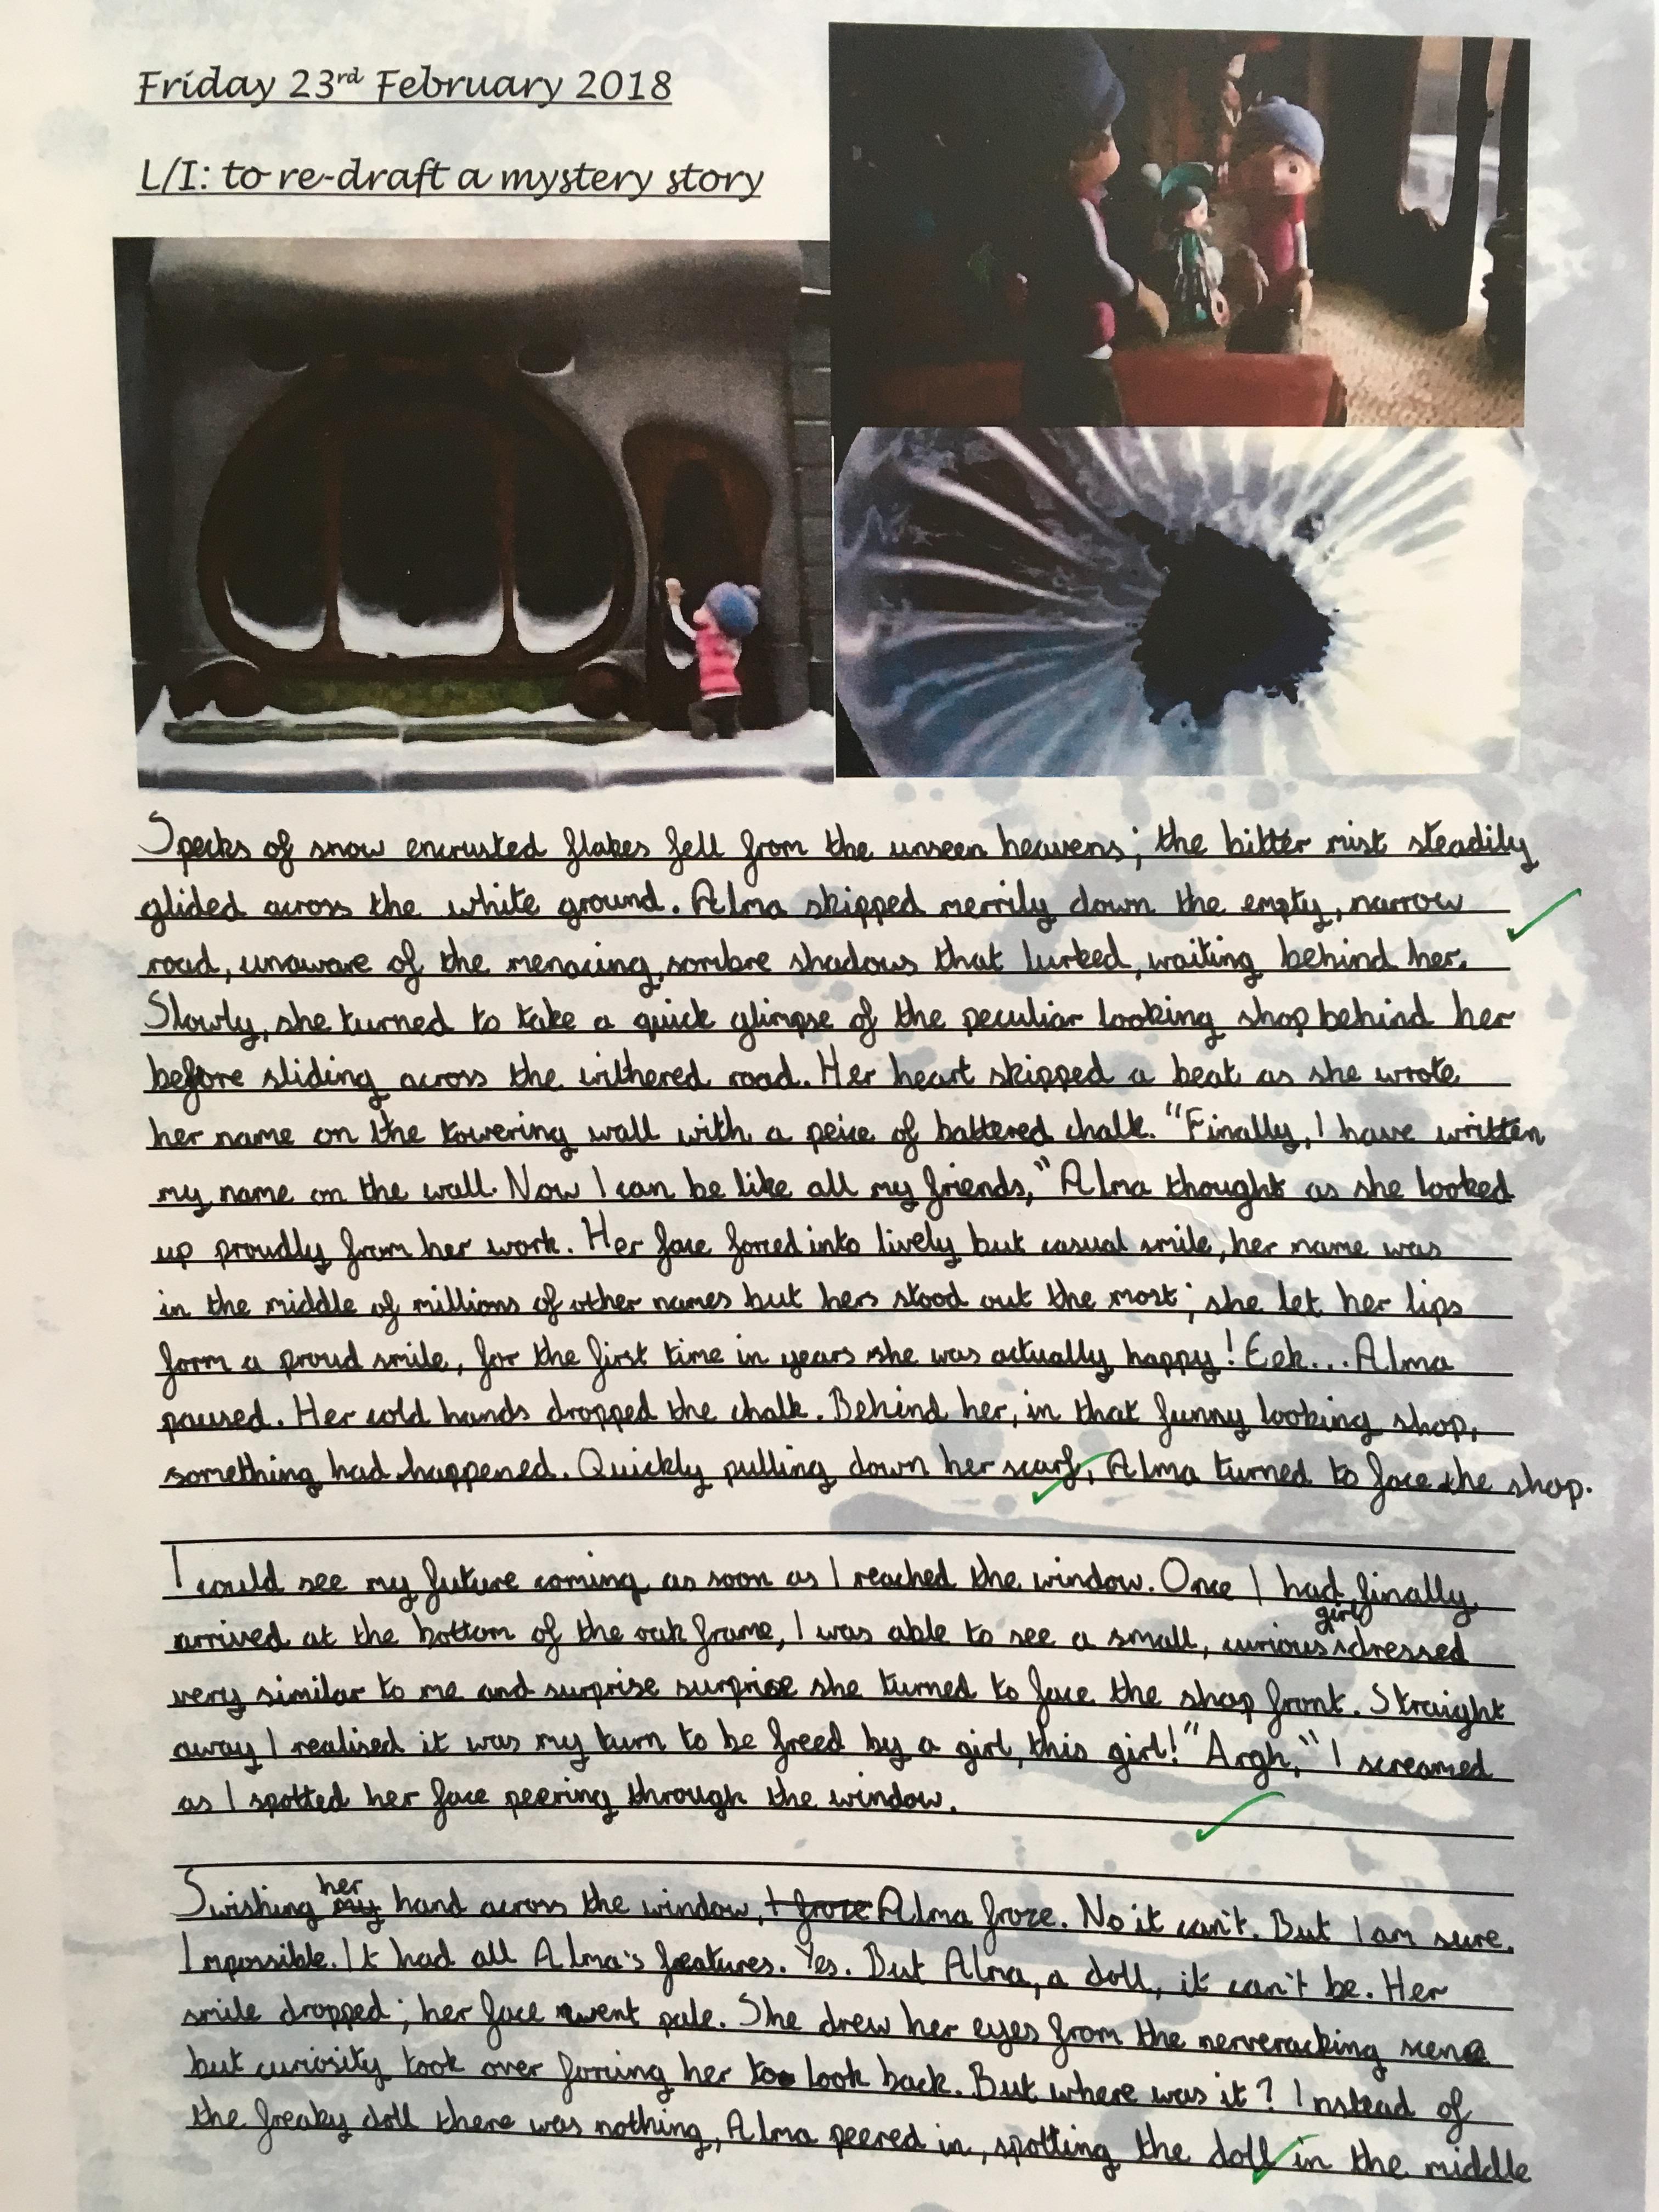 Friday 23rd February 2018
L/I: to re-draft a mystery story
Specks of snow encrusted flakes fell from the unseen heavens; the bitter mist steadily
glided across the white ground. Alma skipped merrily down the empty, narrow
road, unaware of the menacing, sombre shadows that lurked, waiting behind her.
Slowly, she turned to take a quick glimpse of the peculiar looking shop behind her
before sliding across the withered road. Her heart skipped a beat as she wrote
her name on the towering wall with a peice of battered chalk. "Finally, I have written
my name on the wall. Now I can be like all my friends," Alma thought as she looked
up proudly from her work. Her face forced into lively but casual smile, her name was
in the middle of millions of other names but hers stood out the most; she let her lips
form a proud smile, for the first time in years she was actually happy! Eek... Alma
paused. Her cold hands dropped the chalk. Behind her, in that funny looking shop,
something had happened. Quickly pulling down her scarf, Alma turned to face the shop.
I could see my future coming as soon as I reached the window. Once I had finally
arrived at the bottom of the oak frame, I was able to see a small, curious girl dressed
very similar to me and surprise surprise she turned to face the shop front. Straight
away I realised it was my turn to be freed by a girl, this girl! "Argh," I screamed
as I spotted her face peering through the window.
Swishing my her hand across the window, I froze Alma froze. No it can't. But I am sure.
Impossible. It had all Alma's features. Yes. But Alma, a doll, it can't be. Her
smile dropped; her face went pale. She drew her eyes from the nerveracking scene
but curiosity took over forcing her to look back. But where was it? Instead of
the freaky doll there was nothing, Alma peered in, spotting the doll in the middle